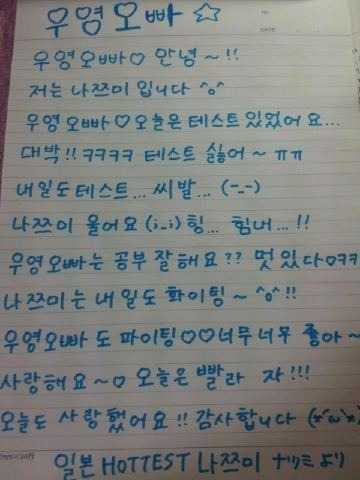 우영오빠 ☆
우영오빠♡ 안녕~!!
저는 나쯔미 입니다 ^o^
우영오빠♡오늘은테스트 있었어요...
대박!! ㅋㅋㅋㅋ 테스트 싫어~ ㅠㅠ
내일도테스트... 씨발... (-_-)
나쯔미 울어요 (i_i) 힝... 힘내...!!
우영오빠는 공부 잘해요?? 멋있다♡ㅋㅋ
나쯔미는 내일도 화이팅~ ^o^!!
우영오빠 도 파이팅♡♡너무너무 좋아~
사랑해요~♡ 오늘은 빨라 자!!!
오늘도 사랑했어요!! 감사합니다 (*´ω`*)
일본 HOTTEST 나쯔미 ナツミより